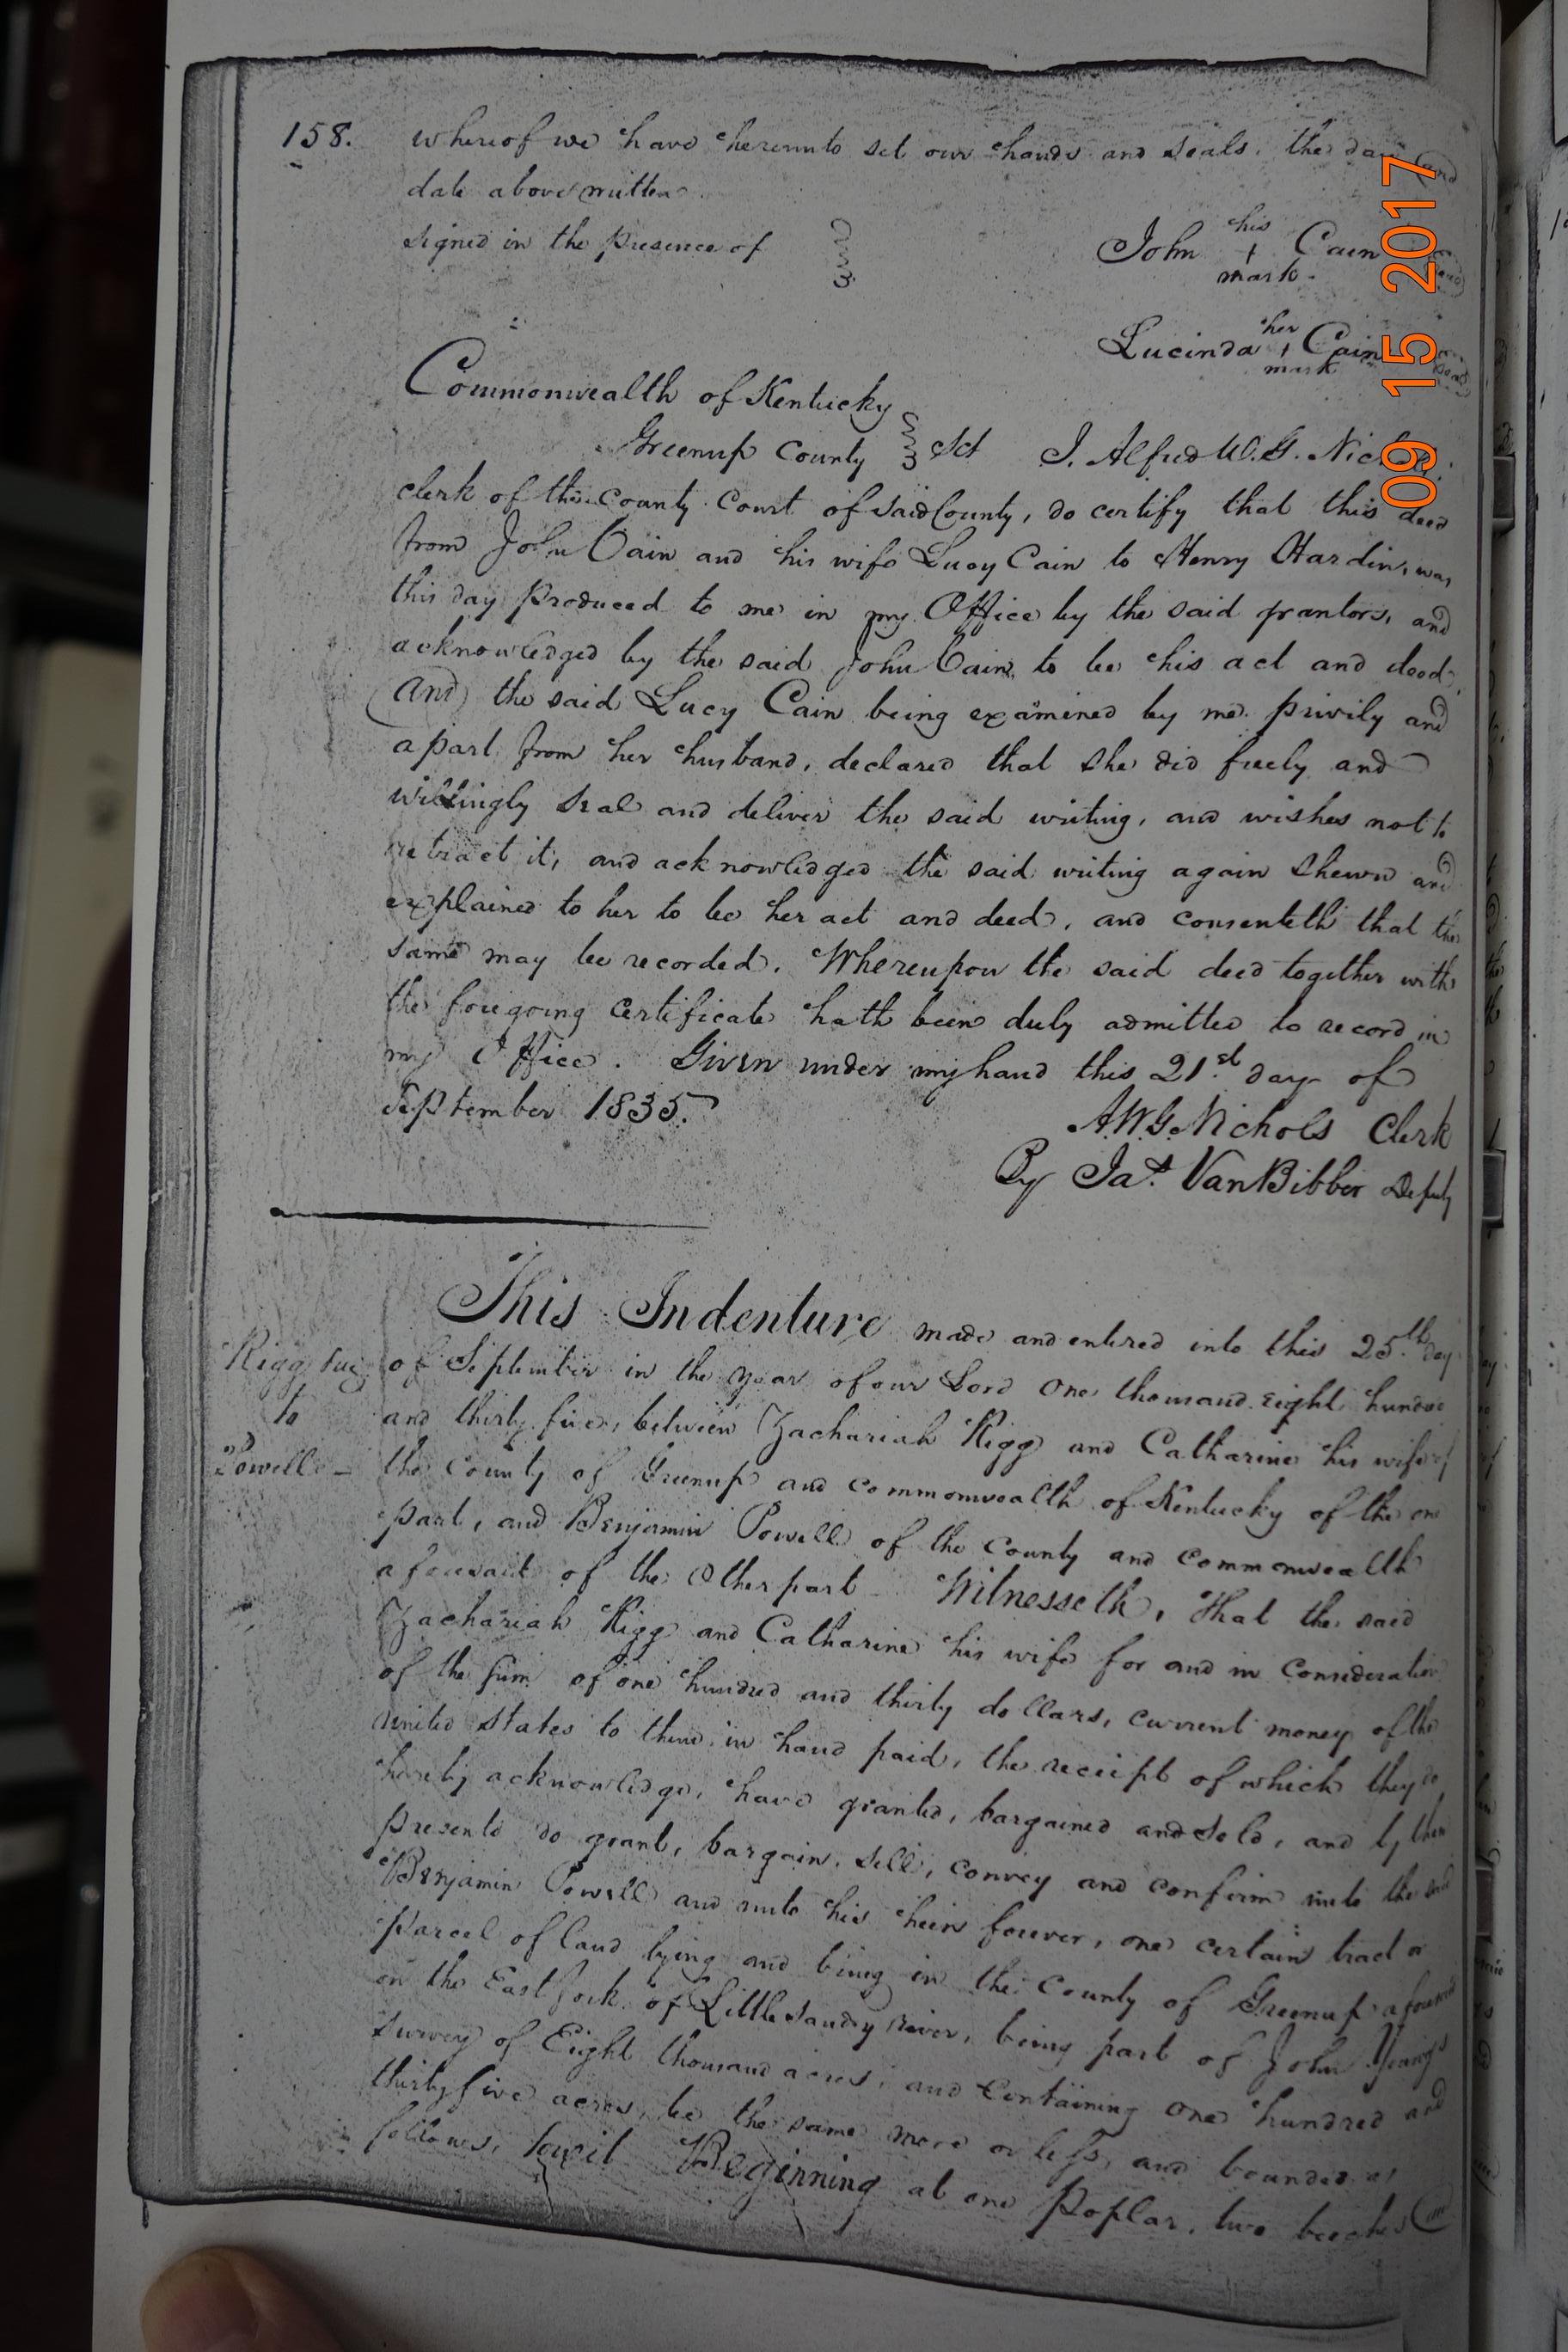 158. whereof we have hereunto set our hands and seals, the day and
date above written
signed in the presence of
John his + mark Cain seal
Lucinda her + mark Cain seal
Commonwealth of Kentucky
Greenup County Sct I. Alfred W. G. Nichols
clerk of the County Court of said County, do certify that this deed
from John Cain and his wife Lucy Cain to Henry Hardin, was
this day produced to me in my Office by the said grantors, and
acknowledged by the said John Cain, to be his act and deed,
And the said Lucy Cain being examined by me privily and
apart from her husband, declared that she did freely and
willingly seal and deliver the said writing, and wishes not to
retract it, and acknowledged the said writing again shewn and
explained to her to be her act and deed, and consenteth that the
same may be recorded. Whereupon the said deed together with
the foregoing certificate hath been duly admitted to record in
my Office. Given under my hand this 21st day of
September 1835.
A.W.G. Nichols Clerk
By Jas. VanBibber Deputy
This Indenture made and entered into this 25th day
Rigg
to
Powell
of September in the year of our Lord One thousand eight hundred
and thirty five, between Zachariah Rigg and Catharine his wife of
the County of Greenup and commonwealth of Kentucky of the one
part, and Benjamin Powell of the County and commonwealth
aforesaid of the Other part Witnesseth, That the said
Zachariah Rigg and Catharine his wife for and in Consideration
of the sum of one hundred and thirty dollars, current money of the
united States to them in hand paid, the receipt of which they do
hereby acknowledge, have granted, bargained and sold, and by these
presents do grant, bargain, sell, convey and confirm unto the said
Benjamin Powell and unto his heirs forever, one certain tract or
parcel of land lying and being in the County of Greenup aforesaid
on the East fork of Little Sandy river, being part of John Young's
survey of Eight thousand acres, and Containing One hundred and
thirty five acres, be the same more or less, and bounded as
follows, towit Beginning at one Poplar, two beeches
09 15 2017